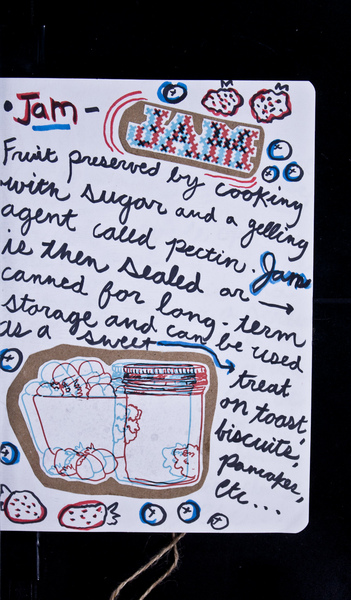 • Jam -
JAM
Fruit preserved by cooking
with sugar and a gelling
agent called pectin. Jam
is then sealed or →
canned for long-term
storage and can be used
as a sweet →
treat
on toast,
biscuits,
pancakes,
etc...